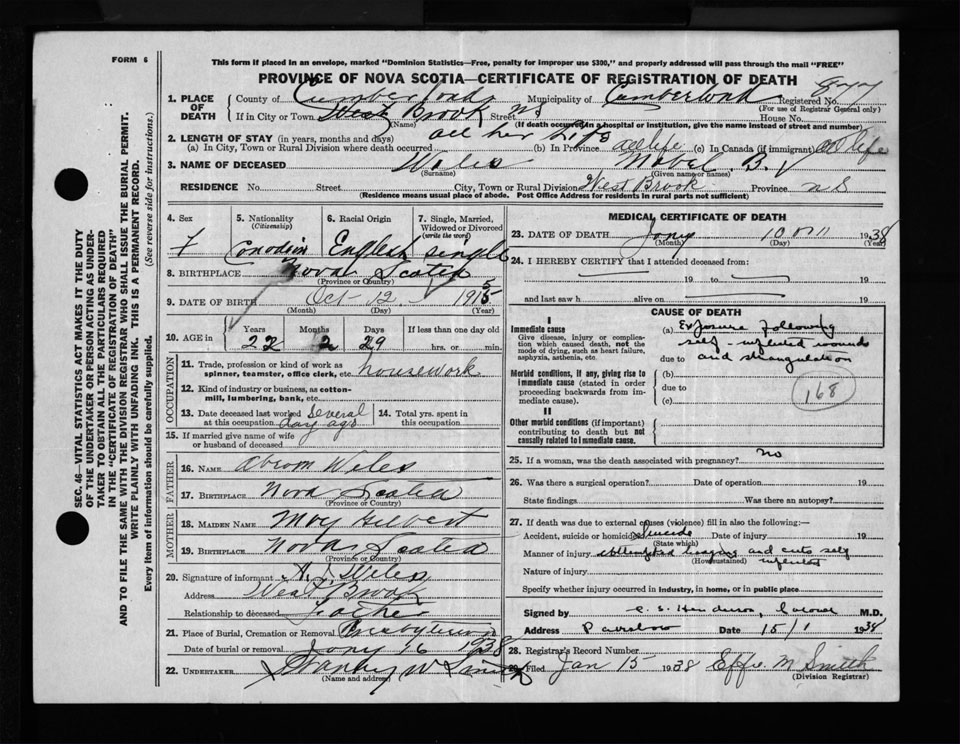 FORM 6
This form if placed in an envelope, marked "Dominion Statistics—Free, penalty for improper use $300," and properly addressed will pass through the mail "FREE"
PROVINCE OF NOVA SCOTIA—CERTIFICATE OF REGISTRATION OF DEATH
1. PLACE OF DEATH
County of Cumberland Municipality of Cumberland Registered No. 877
(For use of Registrar General only)
If in City or Town West Brook NS Street House No.
(Name) (If death occurred in a hospital or institution, give the name instead of street and number)
2. LENGTH OF STAY (in years, months and days) all her life
(a) In City, Town or Rural Division where death occurred (b) In Province all life (c) In Canada (if immigrant) all life
3. NAME OF DECEASED Wiles Mabel B.
(Surname) (Given name or names)
RESIDENCE No. Street City, Town or Rural Division West Brook Province NS
(Residence means usual place of abode. Post Office Address for residents in rural parts not sufficient)
4. Sex
F
5. Nationality (Citizenship)
Canadian
6. Racial Origin
English
7. Single, Married, Widowed or Divorced (write the word)
single
8. BIRTHPLACE Nova Scotia
(Province or Country)
9. DATE OF BIRTH Oct 12 1915
(Month) (Day) (Year)
10. AGE in Years Months Days If less than one day old
22 2 29 hrs. or min.
OCCUPATION
11. Trade, profession or kind of work as spinner, teamster, office clerk, etc. housework
12. Kind of industry or business, as cotton-mill, lumbering, bank, etc.
13. Date deceased last worked at this occupation several days ago
14. Total yrs. spent in this occupation
15. If married give name of wife or husband of deceased
FATHER
16. NAME Abrom Wiles
17. BIRTHPLACE Nova Scotia
(Province or Country)
MOTHER
18. MAIDEN NAME May Gilbert
19. BIRTHPLACE Nova Scotia
(Province or Country)
20. Signature of informant A. Wiles
Address West Brook
Relationship to deceased Father
21. Place of Burial, Cremation or Removal Presbyterian
Date of burial or removal Jany 16 1938
22. UNDERTAKER Stanley W Smith
(Name and address)
MEDICAL CERTIFICATE OF DEATH
23. DATE OF DEATH Jany 10 or 11 1938
(Month) (Day) (Year)
24. I HEREBY CERTIFY that I attended deceased from:
19 to 19
and last saw h alive on 19
CAUSE OF DEATH
I
Immediate cause
Give disease, injury or complication which caused death, not the mode of dying, such as heart failure, asphyxia, asthenia, etc.
(a) Exposure following
self-inflicted wounds
due to and strangulation
Morbid conditions, if any, giving rise to immediate cause (stated in order proceeding backwards from immediate cause).
(b)
due to
(c)
168
II
Other morbid conditions (if important) contributing to death but not causally related to immediate cause.
25. If a woman, was the death associated with pregnancy? no
26. Was there a surgical operation? Date of operation 19
State findings Was there an autopsy?
27. If death was due to external causes (violence) fill in also the following:—
Accident, suicide or homicide? Suicide Date of injury 19
(State which)
Manner of injury attempted hanging and cuts self inflicted
(How sustained)
Nature of injury
Specify whether injury occurred in industry, in home, or in public place
Signed by C. S. Henderson, Coroner M.D.
Address Parrsboro Date 15/1 1938
28. Registrar's Record Number
29. Filed Jan 15 1938 Effie M Smith
(Division Registrar)
SEC. 46—VITAL STATISTICS ACT MAKES IT THE DUTY
OF THE UNDERTAKER OR PERSON ACTING AS UNDER-
TAKER TO OBTAIN ALL THE PARTICULARS REQUIRED
IN THE "CERTIFICATE OF REGISTRATION OF DEATH"
AND TO FILE THE SAME WITH THE DIVISION REGISTRAR WHO SHALL ISSUE THE BURIAL PERMIT.
WRITE PLAINLY WITH UNFADING INK. THIS IS A PERMANENT RECORD.
Every item of information should be carefully supplied. (See reverse side for instructions.)